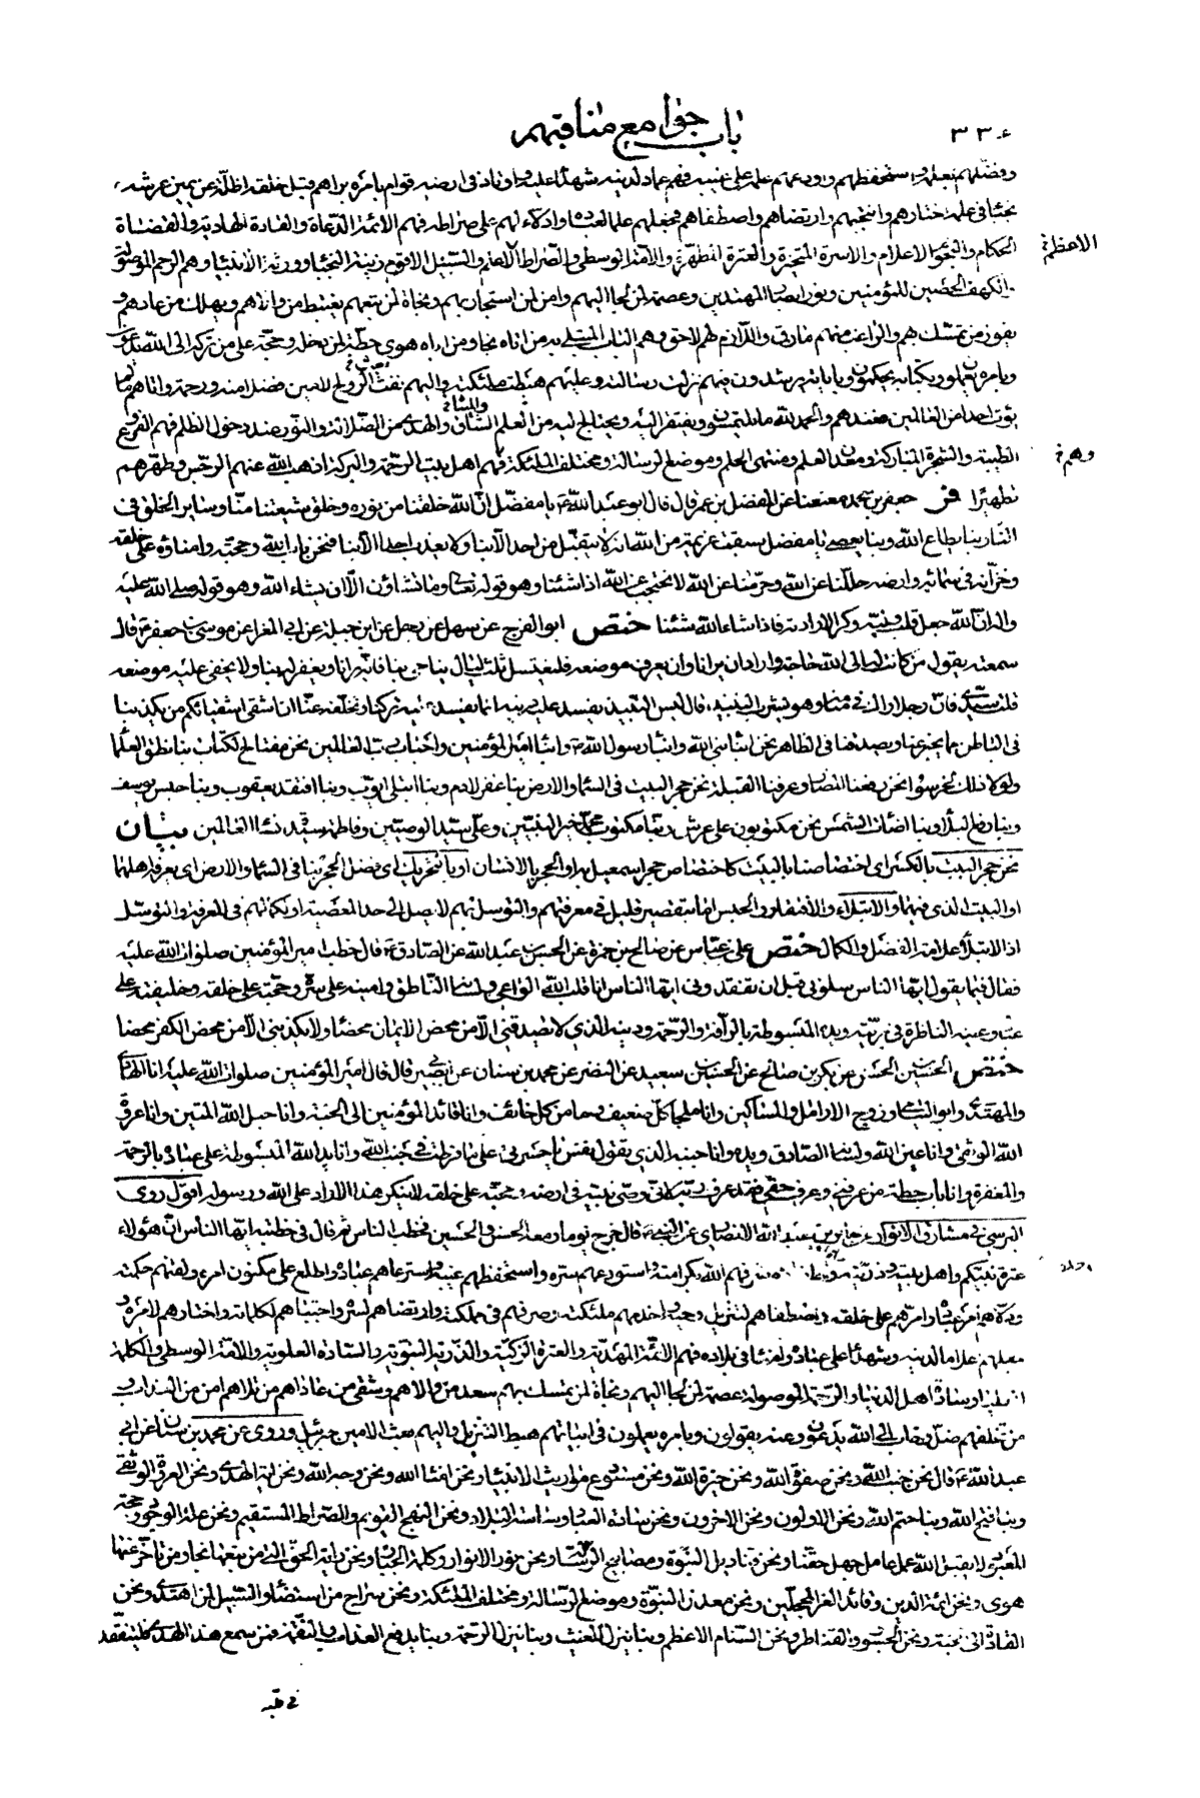 باب جوامع مناقبهم
٣٣٤
وفضلهم بعلمه واستحفظهم واودعهم علمه على غيبه فهم عماد لدينه شهداء عليه واوتاد في ارضه قوام بامره براهم قبل خلقه اظلة عن يمين عرشه
نجباء في علمه اختارهم وانتجبهم وارتضاهم واصطفاهم فجعلهم علما لعباده وادلاء لهم على صراطه فهم الائمة الدعاة والقادة الهادية والقضاة
الحكام والنجوم الاعلام والاسرة المتخيرة والعترة المطهرة والامة الوسطى والصراط الاعلم والسبيل الاقوم زينة النجباء وورثة الانبياء وهم الرحم الموصولة
الاعظم
والكهف الحصين للمؤمنين ونور ابصار المهتدين وعصمة لمن لجا اليهم وامن لمن استجار بهم ونجاة لمن تبعهم يغتبط من والاهم ويهلك من عاداهم و
يفوز من تمسك بهم والراغب عنهم مارق واللازم لهم لاحق وهم الباب المبتلى به من اتاه نجا ومن اباه هوى حطة لمن دخله وحجة على من تركه الى الله يدعون
وبامره يعملون وبكتابه يحكمون وباياته يرشدون فيهم نزلت رسالته وعليهم هبطت ملئكته واليهم نفث الروح الامين فضلا منه ورحمة واتاهم ما لم
يؤت احدا من العالمين فعندهم والحمد لله ما يلتمسون ويفتقر اليه ويحتاج اليه من العلم الشاق والهدى من الضلالة والنور عند دخول الظلم فهم الفروع
الطيبة والشجرة المباركة ومعدن العلم ومنتهى الحلم وموضع الرسالة ومختلف الملئكة فهم اهل بيت الرحمة والبركة اذهب الله عنهم الرجس وطهرهم
وهم
تطهيرا فر جعفر بن محمد معنعنا عن المفضل بن عمر قال قال ابو عبد الله ع يا مفضل ان الله خلقنا من نوره وخلق شيعتنا منا وساير الخلق في
النار بنا يطاع الله وبنا يعصى يا مفضل سبقت عزيمة من الله انه لا يتقبل من احد الا بنا ولا يعذب احدا الا بنا فنحن باب الله وحجته وامناؤه على خلقه
وخزانه في سمائه وارضه حللنا عن الله وحرمنا عن الله لا نحتجب عن الله اذا شئنا وهو قوله تعالى وما تشاؤن الا ان يشاء الله وهو قوله صلى الله عليه
واله ان الله جعل قلب وليه وكر الارادته فاذا شاء الله شئنا ختص ابو الفرج عن سهل عن رجل عن ابن جبلة عن ابي المغرا عن موسى بن جعفر ع قال
سمعته يقول من كانت له الى الله حاجة واراد ان يرانا وان يعرف موضعه فليغتسل ثلث ليال يناجي بنا فانه يرانا ويغفر له بنا ولا يخفى عليه موضعه
قلت سيدي فان رجلا راك في منامه وهو يشرب النبيذ قال ليس النبيذ يفسد عليه دينه انما يفسد عليه تركنا وتخلفه عنا ان اشقى اشقيائكم من يكذبنا
في الباطن بما يخبر عنا ويصدقنا في الظاهر نحن ابناء نبي الله وابناء رسول الله ص وابناء امير المؤمنين واحباب رب العالمين نحن مفتاح الكتاب بنا نطق العلماء
ولولا ذلك لخرسوا نحن رفعنا المنار وعرفنا القبلة نحن حجر البيت في السماء والارض بنا غفر لادم وبنا ابتلي ايوب وبنا افتقد يعقوب وبنا حبس يوسف
وبنا رفع البلاء وبنا اضاءت الشمس نحن مكتوبون على عرش ربنا مكتوب محمد خير النبيين وعلي سيد الوصيين وفاطمة سيدة نساء العالمين بيان
نحن حجر البيت بالكسر اي اختصاصنا بالبيت كاختصاص حجر اسمعيل به او الحجر بالانسان او بالتحريك اي فضل الحجر بنا في السماء والارض اي يعرفه اهلهما
او البيت الذي فيهما والابتلاء والافتقاد والحبس اما بتقصير قليل في معرفتهم والتوسل بهم لا يصل الى حد المعصية او لكمالهم في المعرفة والتوسل
اذ الابتلاء علامة الفضل والكمال ختص علي بن عباس عن صالح بن حمزة عن الحسن بن عبد الله عن الصادق ع قال خطب امير المؤمنين صلوات الله عليه
فقال فيما يقول ايها الناس سلوني قبل ان تفقدوني ايها الناس انا قلب الله الواعي ولسانه الناطق وامينه على سره وحجته على خلقه وخليفته على
عباده وعينه الناظرة في بريته ويده المبسوطة بالرأفة والرحمة ودينه الذي لا يصدقني الا من محض الايمان محضا ولا يكذبني الا من محض الكفر محضا
ختص الحسين بن الحسن عن بكر بن صالح عن الحسين بن سعيد عن النضر عن محمد بن سنان عن ابي بصير قال قال امير المؤمنين صلوات الله عليه انا الهادي
والمهتدي وابو اليتامى وزوج الارامل والمساكين وانا ملجأ كل ضعيف ومامن كل خائف وانا قائد المؤمنين الى الجنة وانا حبل الله المتين وانا عروة
الله الوثقى وانا عين الله ولسانه الصادق ويده وانا جنب الله الذي تقول نفس يا حسرتى على ما فرطت في جنب الله وانا يد الله المبسوطة على عباده بالرحمة
والمغفرة وانا باب حطة من عرفني وعرف حقي فقد عرف ربه لاني وصي نبيه في ارضه وحجته على خلقه لا ينكر هذا الا راد على الله ورسوله اقول روى
البرسي في مشارق الانوار عن جابر بن عبد الله الانصاري عن النبي ص قال خرج يوما ومعه الحسن والحسين فخطب الناس ثم قال في خطبته ايها الناس ان هؤلاء
عترة نبيكم واهل بيته وذريته شرفهم الله بكرامته واستودعهم سره واستحفظهم غيبه واسترعاهم عباده واطلع على مكنون امره ولقنهم حكمته
وولاهم امر عباده وامرهم على خلقه واصطفاهم لتنزيله واخدمهم ملئكته وصرفهم في مملكته وارتضاهم لسره واجتباهم لكلماته واختارهم لامره و
جعلهم اعلاما لدينه وشهداء على عباده وامناء في بلاده فهم الائمة المهدية والعترة الزكية والذرية النبوية والسادة العلوية والامة الوسطى والكلمة
العليا وسادة اهل الدنيا والرحمة الموصولة عصمة لمن لجا اليهم ونجاة لمن تمسك بهم سعد من والاهم وشقي من عاداهم من تلاهم امن من العذاب و
من تخلف عنهم ضل وخاب الى الله يدعون وعنه يقولون وبامره يعملون في ابياتهم هبط التنزيل واليهم بعث الامين جبرئيل وروى عن محمد بن سنان عن ابي
عبد الله ع قال نحن جنب الله ونحن صفوة الله ونحن خيرة الله ونحن مستودع مواريث الانبياء ونحن امناء الله ونحن وجه الله ونحن اية الهدى ونحن العروة الوثقى
وبنا فتح الله وبنا ختم الله ونحن الاولون ونحن الاخرون ونحن سادة العباد وساسة البلاد ونحن النهج القويم والصراط المستقيم ونحن علة الوجود وحجة
المعبود لا يقبل الله عمل عامل جهل حقنا ونحن قناديل النبوة ومصابيح الرسالة ونحن نور الانوار وكلمة الجبار ونحن راية الحق التي من تبعها نجا ومن تاخر عنها
هوى ونحن ائمة الدين وقائد الغر المحجلين ونحن معدن النبوة وموضع الرسالة ومختلف الملئكة ونحن سراج من استضاء والسبيل لمن اهتدى ونحن
القادة الى الجنة ونحن الجسور والقناطر ونحن السنام الاعظم وبنا ينزل الغيث وبنا ينزل الرحمة وبنا يدفع العذاب والنقمة فمن سمع هذا الهدى فليتفقد
في قلبه